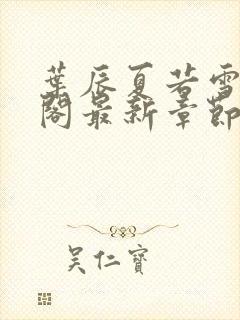 葉辰夏若雪
閣最新章節
吴仁寶